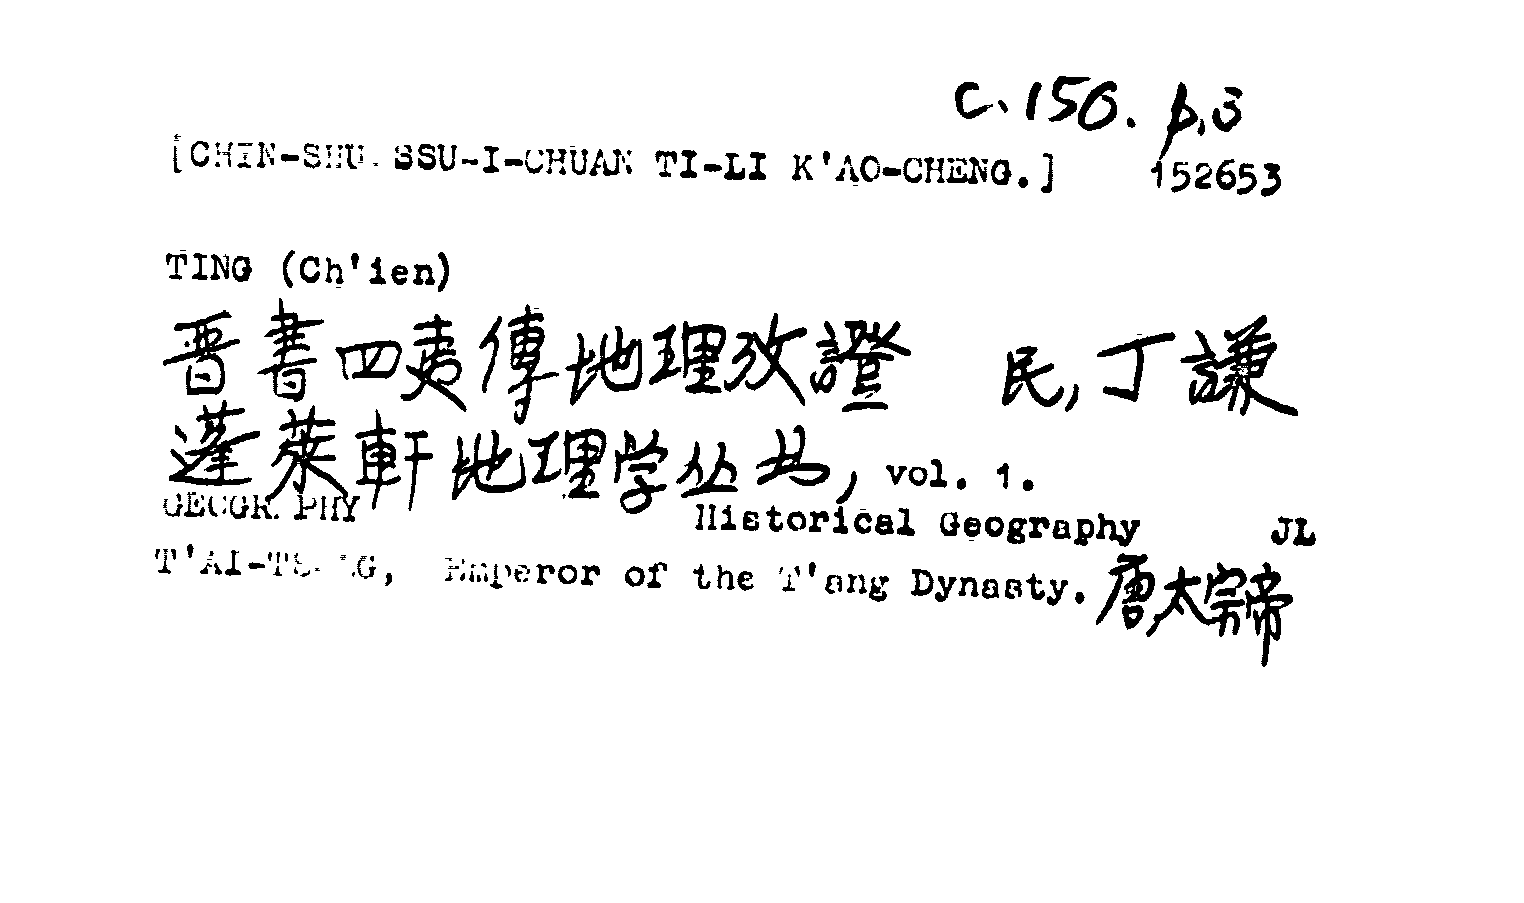 C. 150. p.3
[CHIN-SHU SSU-I-CHUAN TI-LI K'AO-CHENG.] 152653
TING (Ch'ien)
晋書四夷傳地理攷證 民,丁謙
蓬萊軒地理学丛书, vol. 1.
GEOGRAPHY Historical Geography JL
T'AI-TSUNG, Emperor of the T'ang Dynasty. 唐,太宗帝